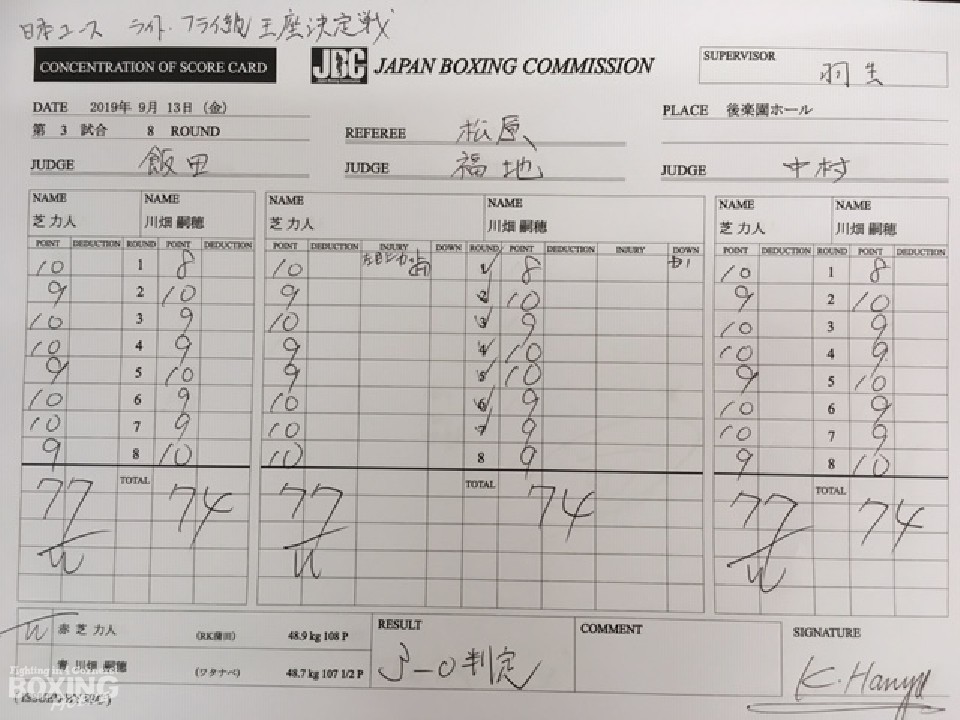 日本ユース ライト・フライ級王座決定戦
CONCENTRATION OF SCORE CARD JBC JAPAN BOXING COMMISSION SUPERVISOR 羽生
DATE 2019年 9月 13日 (金) PLACE 後楽園ホール
第 3 試合 8 ROUND REFEREE 松原
JUDGE 飯田 JUDGE 福地 JUDGE 中村
NAME NAME NAME NAME NAME NAME
芝 力人 川畑 嗣穂 芝 力人 川畑 嗣穂 芝 力人 川畑 嗣穂
POINT DEDUCTION ROUND POINT DEDUCTION POINT DEDUCTION INJURY DOWN ROUND POINT DEDUCTION INJURY DOWN POINT DEDUCTION ROUND POINT DEDUCTION
10 1 8 10 1 8 10 1 8
9 2 10 9 2 10 9 2 10
10 3 9 10 3 9 10 3 9
10 4 9 9 4 10 10 4 9
9 5 10 9 5 10 9 5 10
10 6 9 10 6 9 10 6 9
10 7 9 10 7 9 10 7 9
9 8 10 10 8 9 9 8 10
77 TOTAL 74 77 TOTAL 74 77 TOTAL 74
W W W
W 赤 芝 力人 (RK蒲田) 48.9 kg 108 P RESULT COMMENT SIGNATURE
青 川畑 嗣穂 (ワタナベ) 48.7 kg 107 1/2 P 3-0 判定 K. Hanyu
Fighting in 4 Corners
BOXING